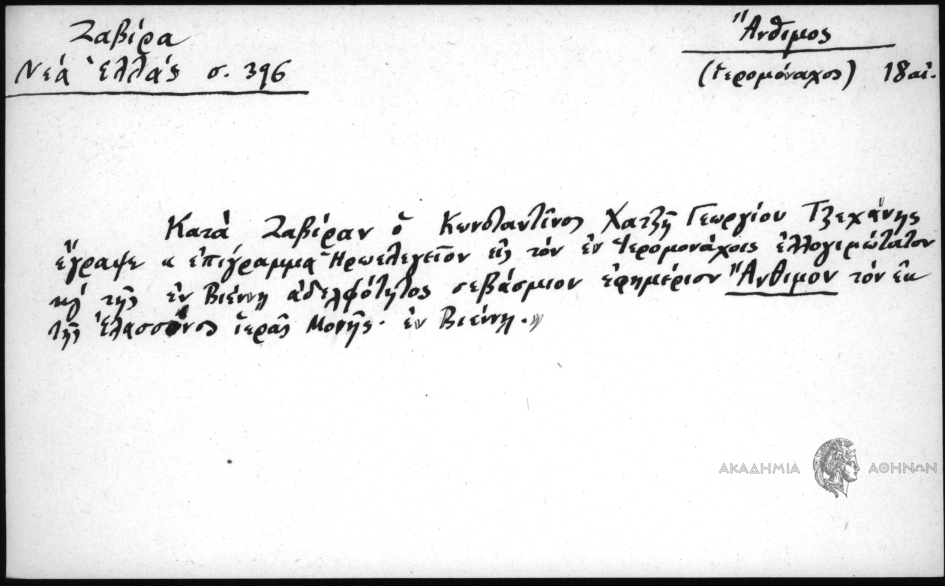 Ζαβίρα
Νέα Ἑλλάς σ. 396
Ἄνθιμος
(Ἱερομόναχος) 18 αἰ.
Κατά Ζαβίραν ὁ Κωνσταντῖνος Χατζῆ Γεωργίου Τζεχάνης
ἔγραψε « ἐπίγραμμα Ἡρωελεγεῖον εἰς τόν ἐν Ἱερομονάχοις ἐλλογιμώτατον
κ̀ τῆς ἐν Βιέννῃ ἀδελφότητος σεβάσμιον ἐφημέριον Ἄνθιμον τόν ἐκ
τῆς Ἐλασσῶνος ἱερᾶς Μονῆς. ἐν Βιέννῃ.»
ΑΚΑΔΗΜΙΑ ΑΘΗΝΩΝ